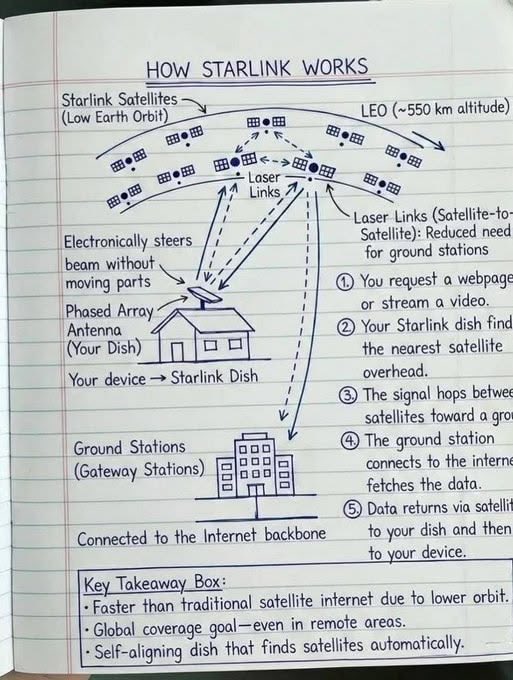 HOW STARLINK WORKS
Starlink Satellites
(Low Earth Orbit)
LEO (~550 km altitude)
Laser
Links
Laser Links (Satellite-to-
Satellite): Reduced need
for ground stations
Electronically steers
beam without
moving parts
Phased Array
Antenna
(Your Dish)
Your device → Starlink Dish
① You request a webpage
or stream a video.
② Your Starlink dish find
the nearest satellite
overhead.
③ The signal hops betwe
satellites toward a grou
④ The ground station
connects to the interne
fetches the data.
⑤ Data returns via satelli
to your dish and then
to your device.
Ground Stations
(Gateway Stations)
Connected to the Internet backbone
Key Takeaway Box:
· Faster than traditional satellite internet due to lower orbit.
· Global coverage goal—even in remote areas.
· Self-aligning dish that finds satellites automatically.